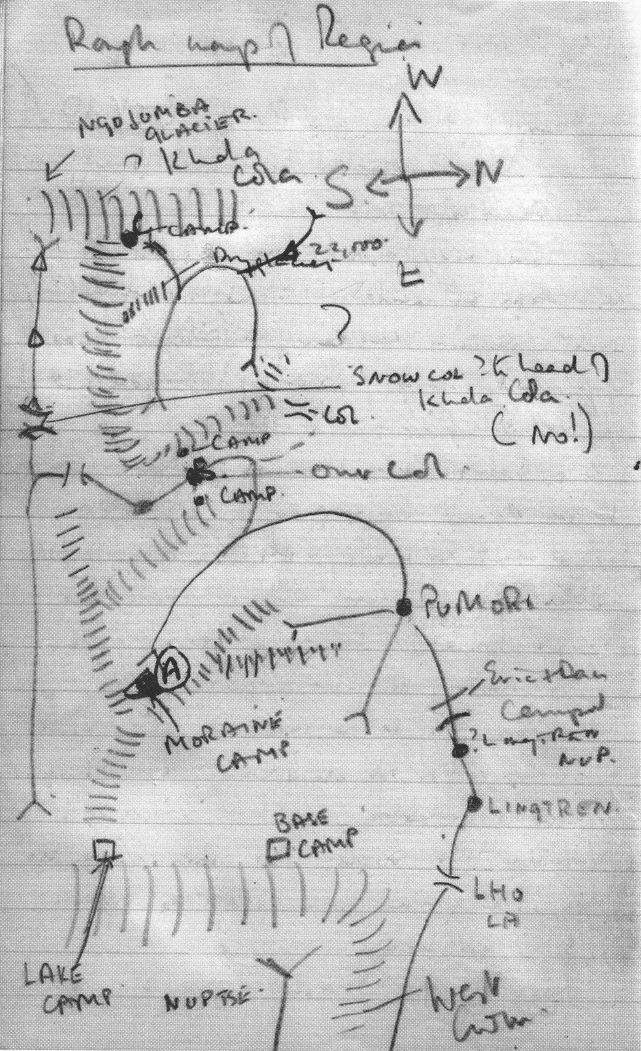 Rough map of Region
W
S
N
E
NGOJUMBA
GLACIER.
? Khola
Cola
CAMP.
22,000.
Dry glacier
?
SNOW COL ? K head of
Khola Cola.
(No!)
COL
CAMP
our Col
CAMP.
PUMORI.
A
MORAINE
CAMP
Eric + Dan
Camped
? LINGTREN
NUP.
LINGTREN.
BASE
CAMP
LHO
LA
LAKE
CAMP
NUPTSE.
West
Cwm.